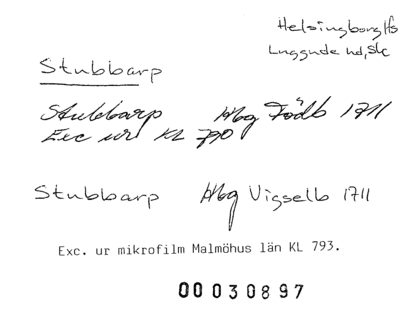 Helsingborg lfs
Luggude hd, Sk
Stubbarp
Stubbarp Hbg Födb 1711
Exc ur KL 790
Stubbarp Hbg Vigselb 1711
Exc. ur mikrofilm Malmöhus län KL 793.
00 030897